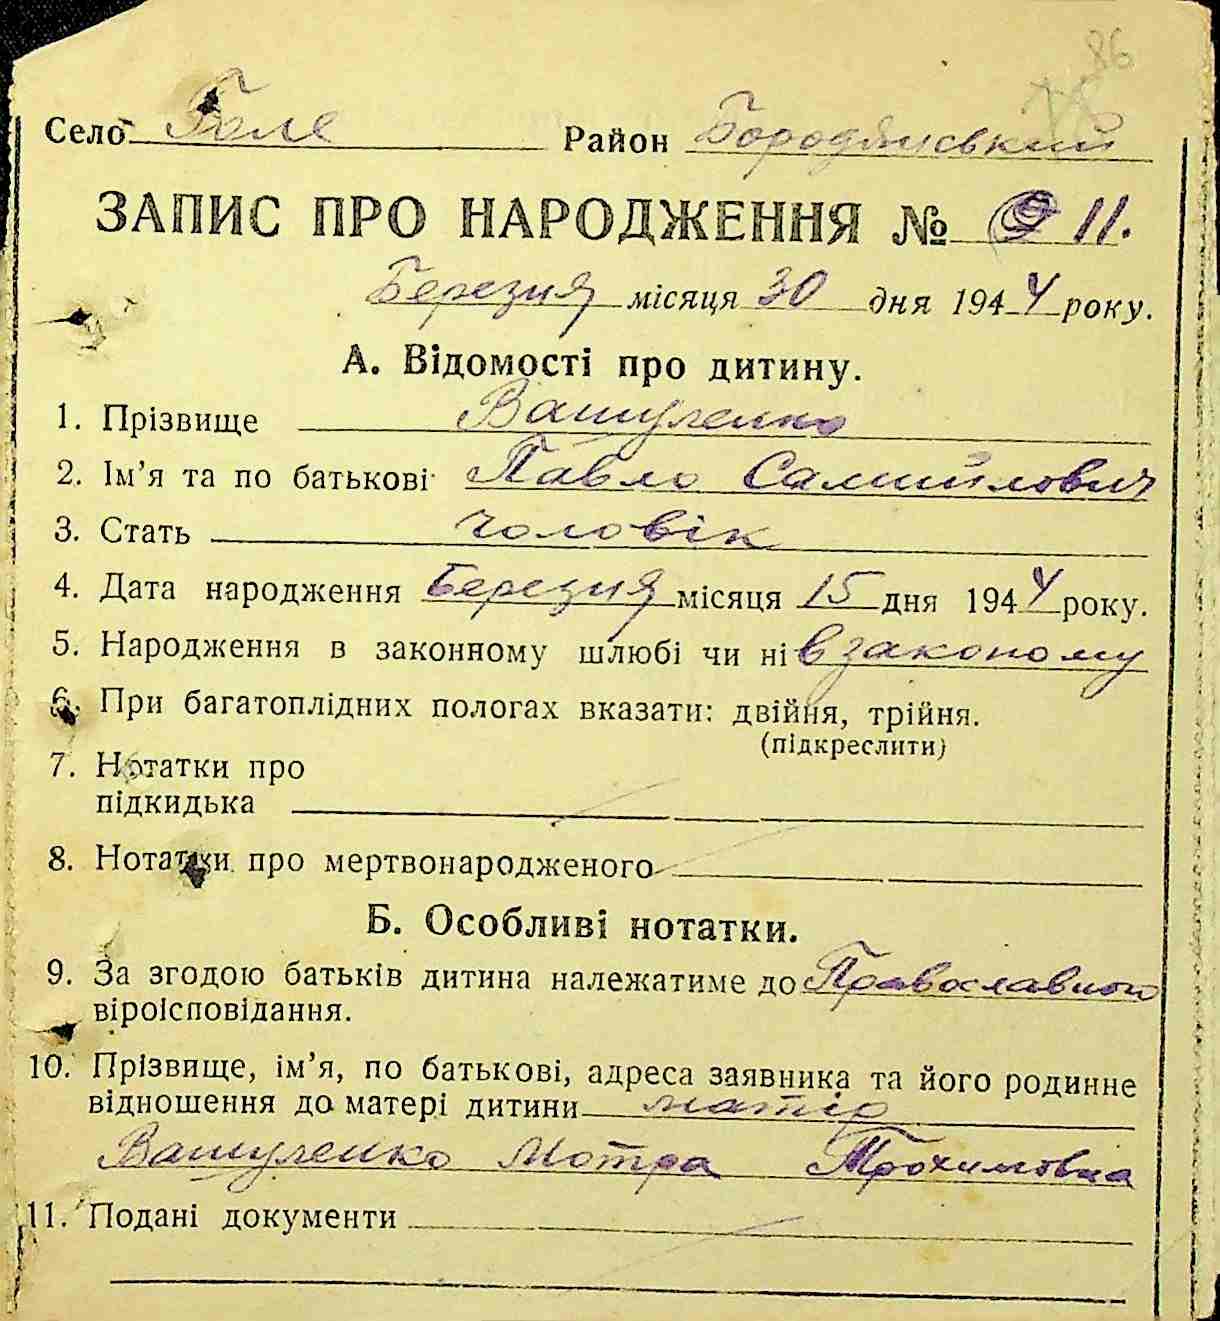 86
Село Голе Район Бородянський
ЗАПИС ПРО НАРОДЖЕННЯ № 11.
Березня місяця 30 дня 1944 року.
А. Відомості про дитину.
1. Прізвище Вашуленко
2. Ім’я та по батькові Павло Самійлович
3. Стать чоловік
4. Дата народження Березня місяця 15 дня 1944 року.
5. Народження в законному шлюбі чи ні в законому
6. При багатоплідних пологах вказати: двійня, трійня.
(підкреслити)
7. Нотатки про
підкидька
8. Нотатки про мертвонародженого
Б. Особливі нотатки.
9. За згодою батьків дитина належатиме до Православного
віроісповідання.
10. Прізвище, ім’я, по батькові, адреса заявника та його родинне
відношення до матері дитини матір
Вашуленко Мотра Трохимовна
11. Подані документи